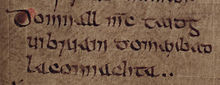 Domnall mc taidg
uibriain domarbad
laconnachta..